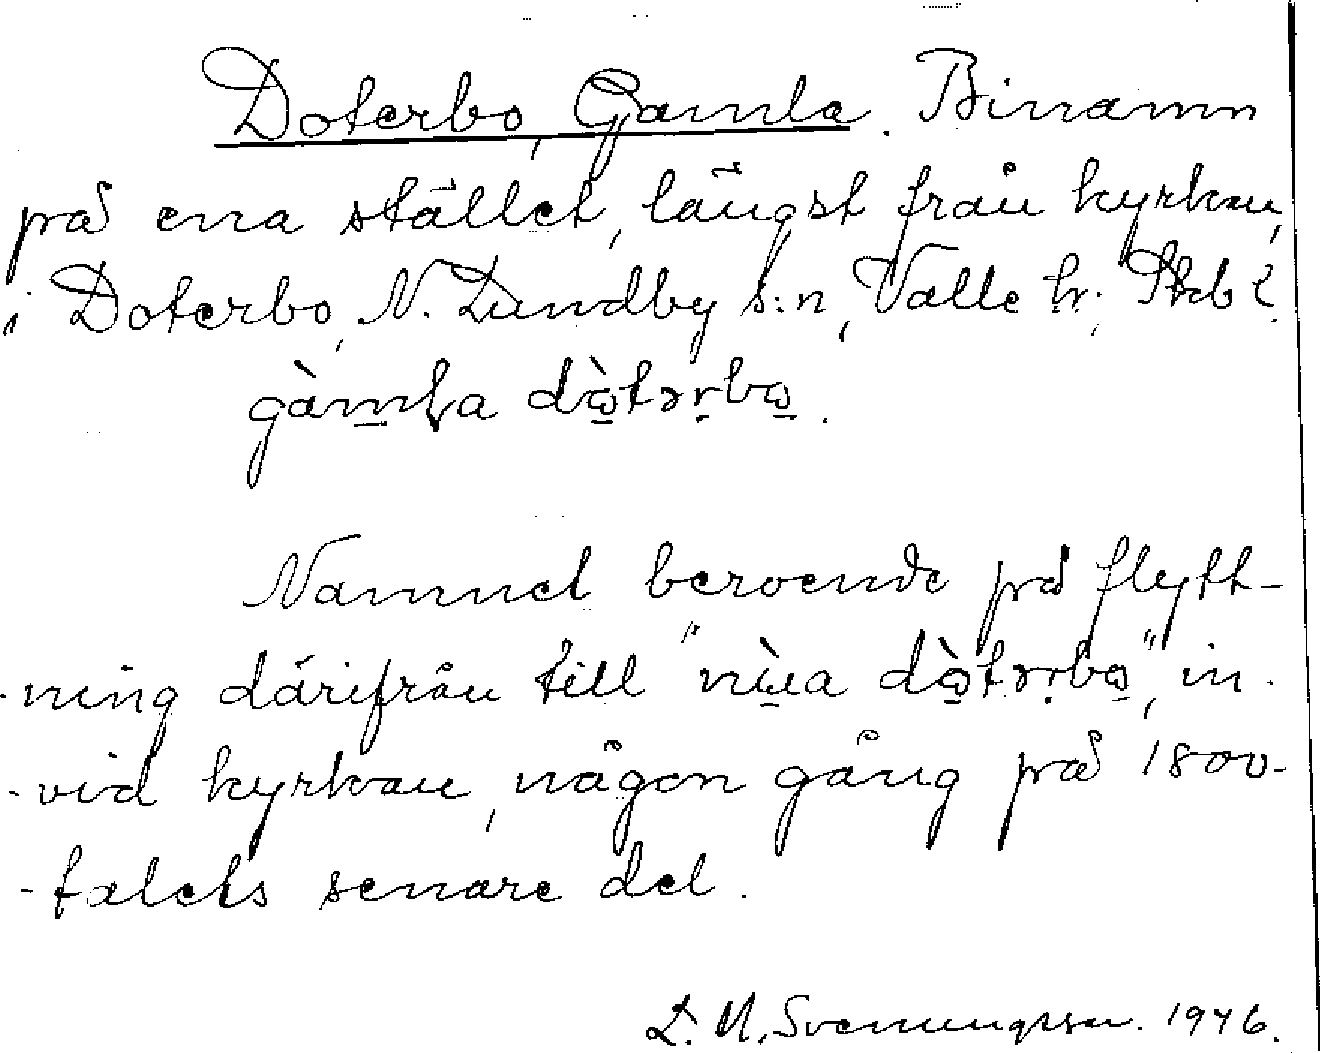 Doterbo, Gamla. Binamn
på ena stället, längst från kyrkan,
i Doterbo, N. Lundby s:n, Valle hr; Skbl.
gàmla dò̱tərbo̱.
Namnet beroende på flytt-
-ning därifrån till "nùa dò̱tərbo̱", in-
-vid kyrkan, någon gång på 1800-
-talets senare del.
L. M. Svenungsson. 1946.